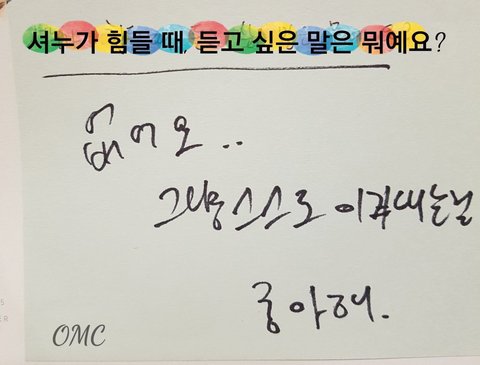 셔누가 힘들 때, 듣고 싶은 말은 뭐예요?
없어요..
그냥 스스로 이겨내는걸
좋아해.
OMC